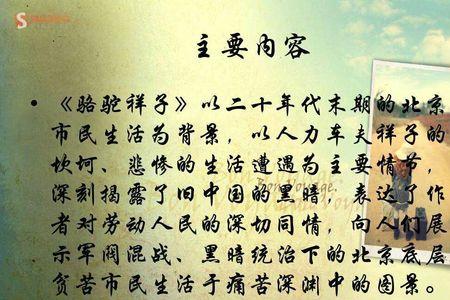 主要内容
• 《骆驼祥子》以二十年代末期的北京
市民生活为背景，以人力车夫祥子的
坎坷、悲惨的生活遭遇为主要情节，
深刻揭露了旧中国的黑暗，表达了作
者对劳动人民的深切同情，向人们展
示军阀混战、黑暗统治下的北京底层
贫苦市民生活于痛苦深渊中的图景。